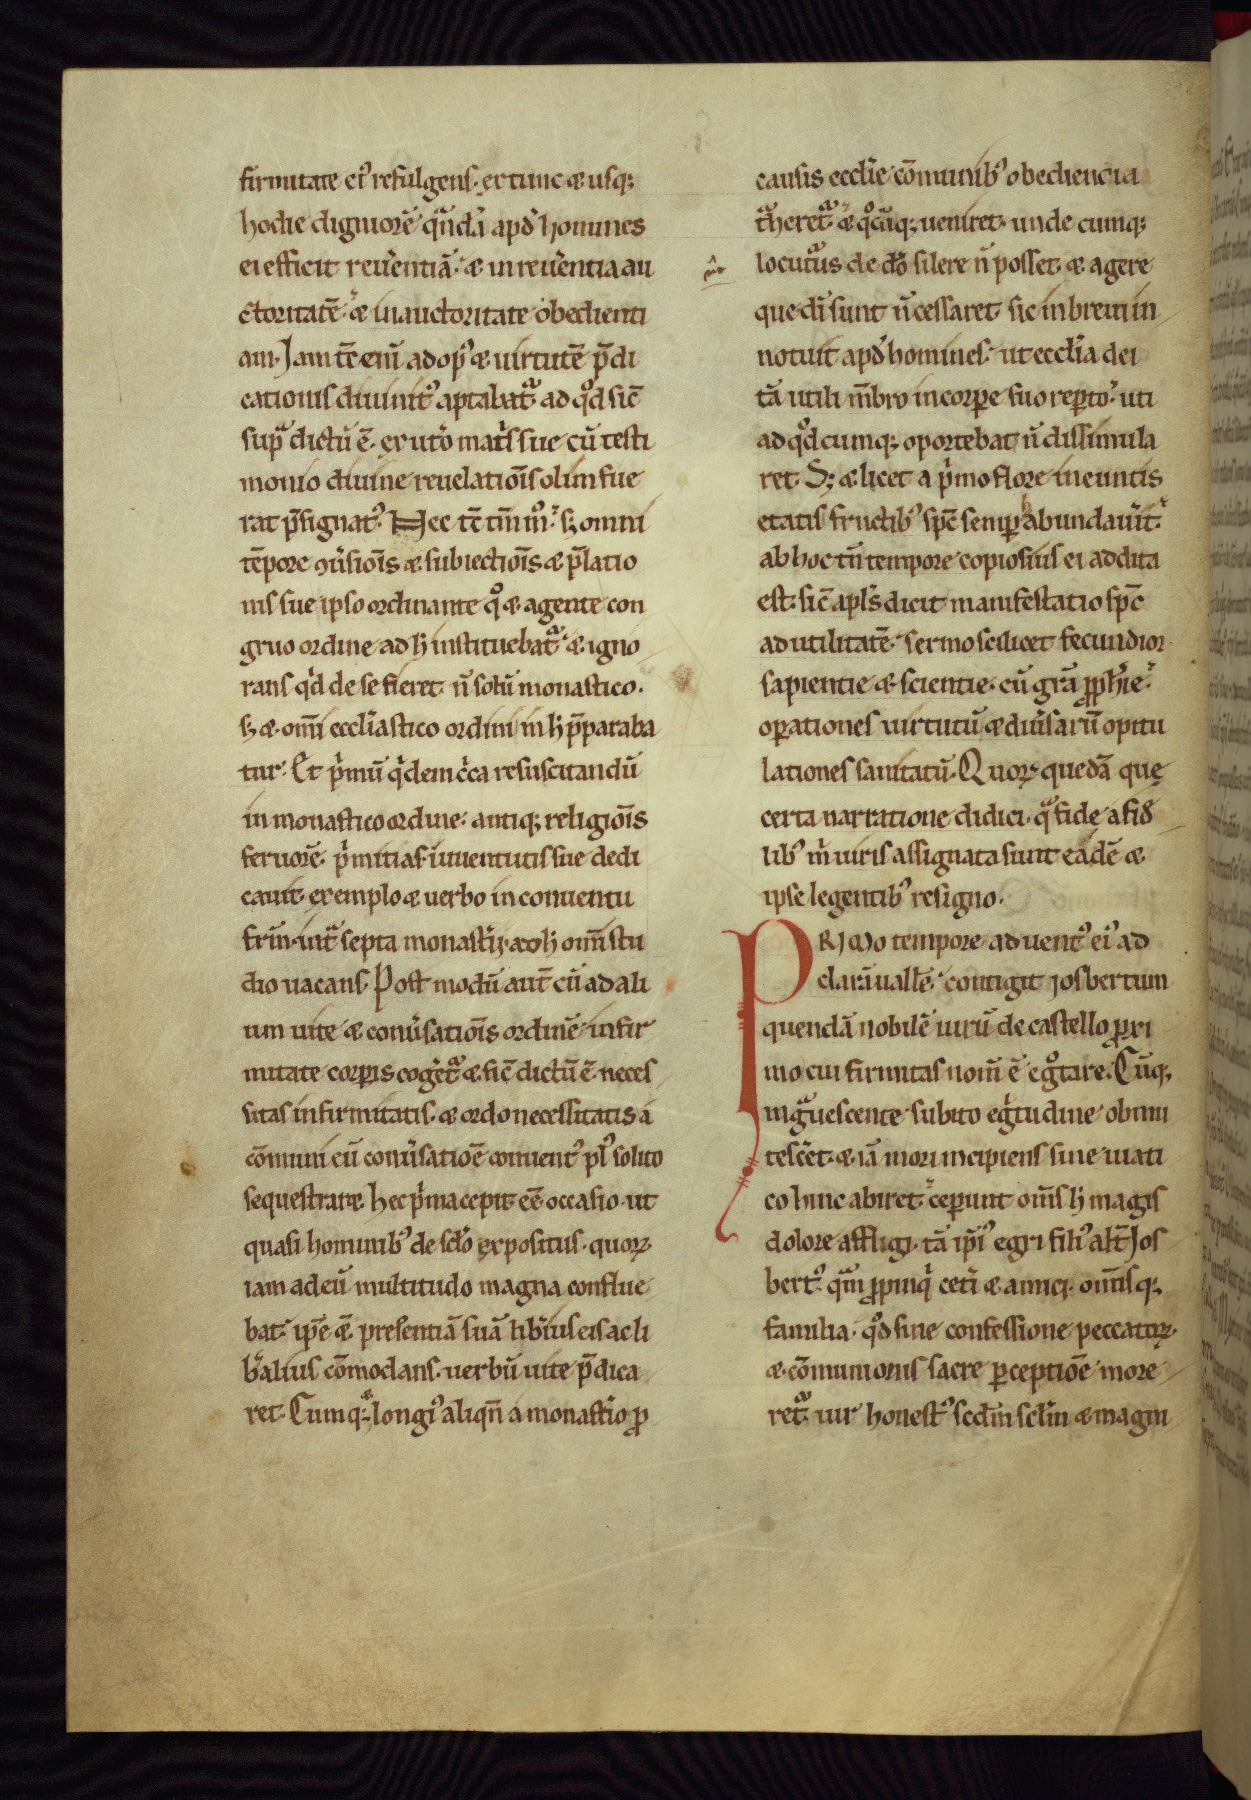 firmitate ei᾽ refulgens. ex tunc ⁊ usq;
hodie digniorē quādā apd̓ homines
ei efficit reuerentiā. ⁊ in reuerentia au
ctoritatē. ⁊ in auctoritate obedienti
am. Jam tc̄ eni᷒ ad op᾽ ⁊ uirtutē p̄di
cationis diuinit᾽ aptabat᷑ ad qd̓ sic̄
supᷓ dictū ē. ex utō mat̓s sue cū testi
monio diuine reuelatiōis olim fue
rat p̄signat᾽. Nec tc̄ tm̄ m̊. sꝫ omni
tēpore ꝯu̓siōis ⁊ subiectiōis ⁊ p̄latio
nis sue ipso ordinante qͦ ⁊ agente con
gruo ordine ad h̓ instituebat᷑ ⁊ igno
rans qͥd de se fieret. n̄ solū monastico.
sꝫ ⁊ om̄i eccl̓iastico ordini in h̓ p̄paraba
tur. Et p̓mū qͥdem c̓ca resuscitandū
in monastico ordine antiq; religiōis
feruorē. p̓mitias iuuentutis sue dedi
cauit. exemplo ⁊ uerbo in conuentu
fr̄m. intᷓ septa monast̓ij. ad h̓ om̄i stu
dio uacans. Post modū aut̄ cū ad ali
um uite ⁊ conu̓satiōis ordinē infir
mitate corꝑis coget᷑ ⁊ sic̄ dictū ē neces
sitas infirmitatis. ⁊ ordo necessitatis a
cōmuni eū conu̓satiōe conuent᾽ pl᾽ solito
sequestraret. hec p̓ma cepit eē occasio. ut
quasi hominib᾽ de scl̓o expositus. quoꝝ
iam ad eū multitudo magna conflue
bat. ip̄e ⁊ presentiā suā lib̓ius eis ac li
b̓alius cōmodans. uerbū uite p̄dica
ret. Cumq; longi᾽ aliqn̄ a monast̓io ꝓ
causis eccl̓ie cōmunib᾽ obediencia
tᷓheret᷑ ⁊ qͦcūq; ueniret. unde cumq;
locutur᾽ de dō silere n̄ posset. ⁊ agere
que di᷒ sunt n̄ cessaret. sic in breui in
notuit apd̓ homines. ut eccl̓ia dei
tā utili m̄bro in corꝑe suo reꝑto. uti
ad qd̓cumq; oportebat n̄ dissimula
ret. Sꝫ ⁊ licet a p̓mo flore ineuntis
etatis fructib᾽ spc̄ semꝑ abundauit.
ab hoc tn̄ tempore copiosius ei addita
est. sic̄ apl̓s dicit manifestatio spc̄
ad utilitatē. sermo scilicet fecundior
sapientie ⁊ scientie. cū gr̄a ꝓph̓ie.
oꝑationes uirtutū ⁊ diu̓sarū opitu
lationes sanitatū. Quoꝝ quedā que
certa narratione didici. qᷓ fide a fid̓
lib᾽ m̓ uiris assignata sunt eadē ⁊
ipse legentib᾽ resigno.
PRIMo tempore aduent᾽ ei᾽ ad
claramuallē. contigit Josbertum
quendā nobilē uirū de castello ꝓxi
mo cui firmitas nom̄ ē egͦtare. Cūq;
ingͣuescente subito egͥtudine obmu
tesc̄et. ⁊ iā mori incipiens sine uiati
co hinc abiret. ceꝑunt om̄s h̓ magis
dolore affligi. tā ip̄i᾽ egri fili᾽ alt̄ Jos
bert᾽. qͣm ꝓpinqͥ cet̓i ⁊ amici. om̄isq;
familia. qd̓ sine confessione peccatoꝝ
⁊ cōmunionis sacre ꝑceptiōe more
ret᷑ uir honest᾽ scd̄m scl̓m ⁊ magni